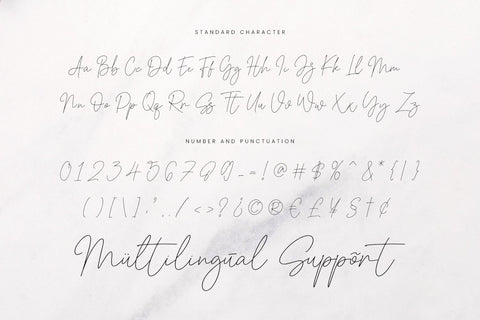 STANDARD CHARACTER
Aa Bb Cc Dd Ee Ff Gg Hh Ii Jj Kk Ll Mm
Nn Oo Pp Qq Rr Ss Tt Uu Vv Ww Xx Yy Zz
NUMBER AND PUNCTUATION
0123456789-=!@#$%^&*{|}
()[\].,"../<>?¿©®€£¥§†¢
Mültilingūal Suppõrt